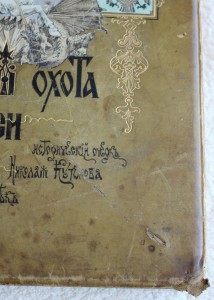 й охота
си
исторический очеркъ
Николая Кутепова
вѣкъ